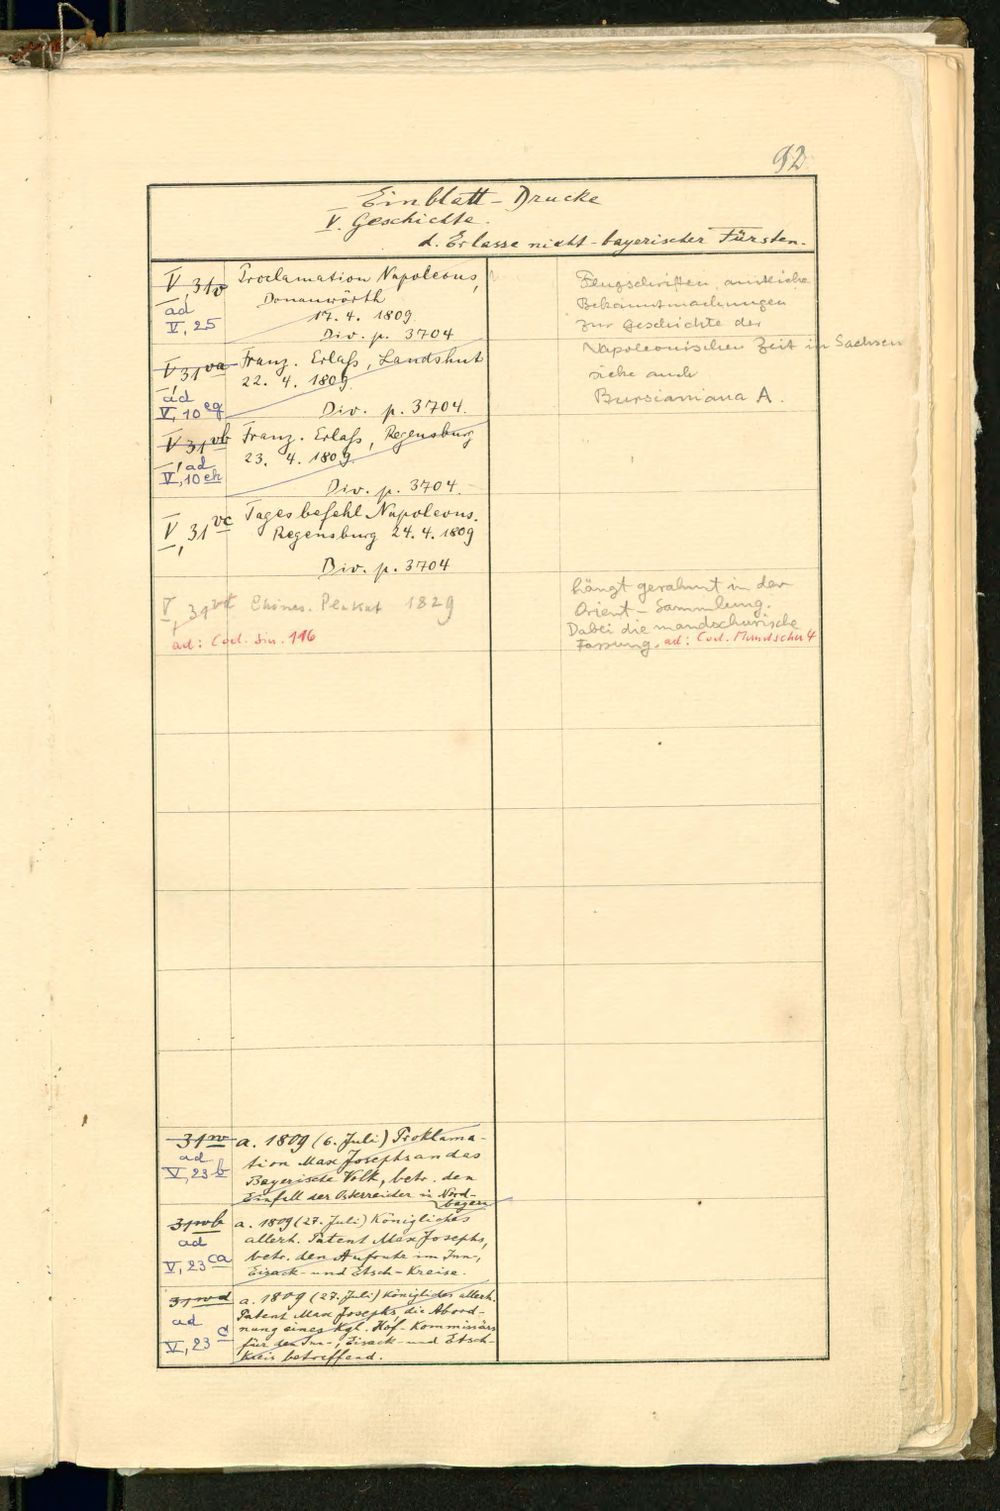 92
Einblatt-Drucke
V. Geschichte.
d. Erlasse nicht-bayerischer Fürsten.
V, 31v
ad
V, 25
Proclamation Napoleons,
Donauwörth
17. 4. 1809
Div. p. 3704
Flugschriften, amtliche
Bekanntmachungen
zur Geschichte der
Napoleonischen Zeit in Sachsen
siehe auch
Bursianiana A.
V 31va
ad
V, 10eg
Franz. Erlaß, Landshut
22. 4. 1809
Div. p. 3704.
V 31vb
ad
V, 10eh
Franz. Erlaß, Regensburg
23. 4. 1809.
Div. p. 3704.
V, 31vc
Tagesbefehl Napoleons.
Regensburg 24. 4. 1809
Div. p. 3704
V, 31vd
Chines. Plakat 1829
ad: Cod. sin. 116
hängt gerahmt in der
Orient-Sammlung.
Dabei die mandschurische
Fassung. ad: Cod. Mandschu 4
31w
ad
V, 23b
a. 1809 (6. Juli) Proklama-
tion Max Josephs an das
Bayerische Volk, betr. den
Einfall der Österreicher in Nord-
bayern
31wb
ad
V, 23ca
a. 1809 (27. Juli) Königliches
allerh. Patent Max Josephs,
betr. den Aufruhr im Inn-,
Eisack- und Etsch-Kreise.
31wd
ad
V, 23c
a. 1809 (27. Juli) Königliches allerh.
Patent Max Josephs, die Abord-
nung eines Kgl. Hof-Kommissärs
für den Inn-, Eisack- und Etsch-
Kreis betreffend.